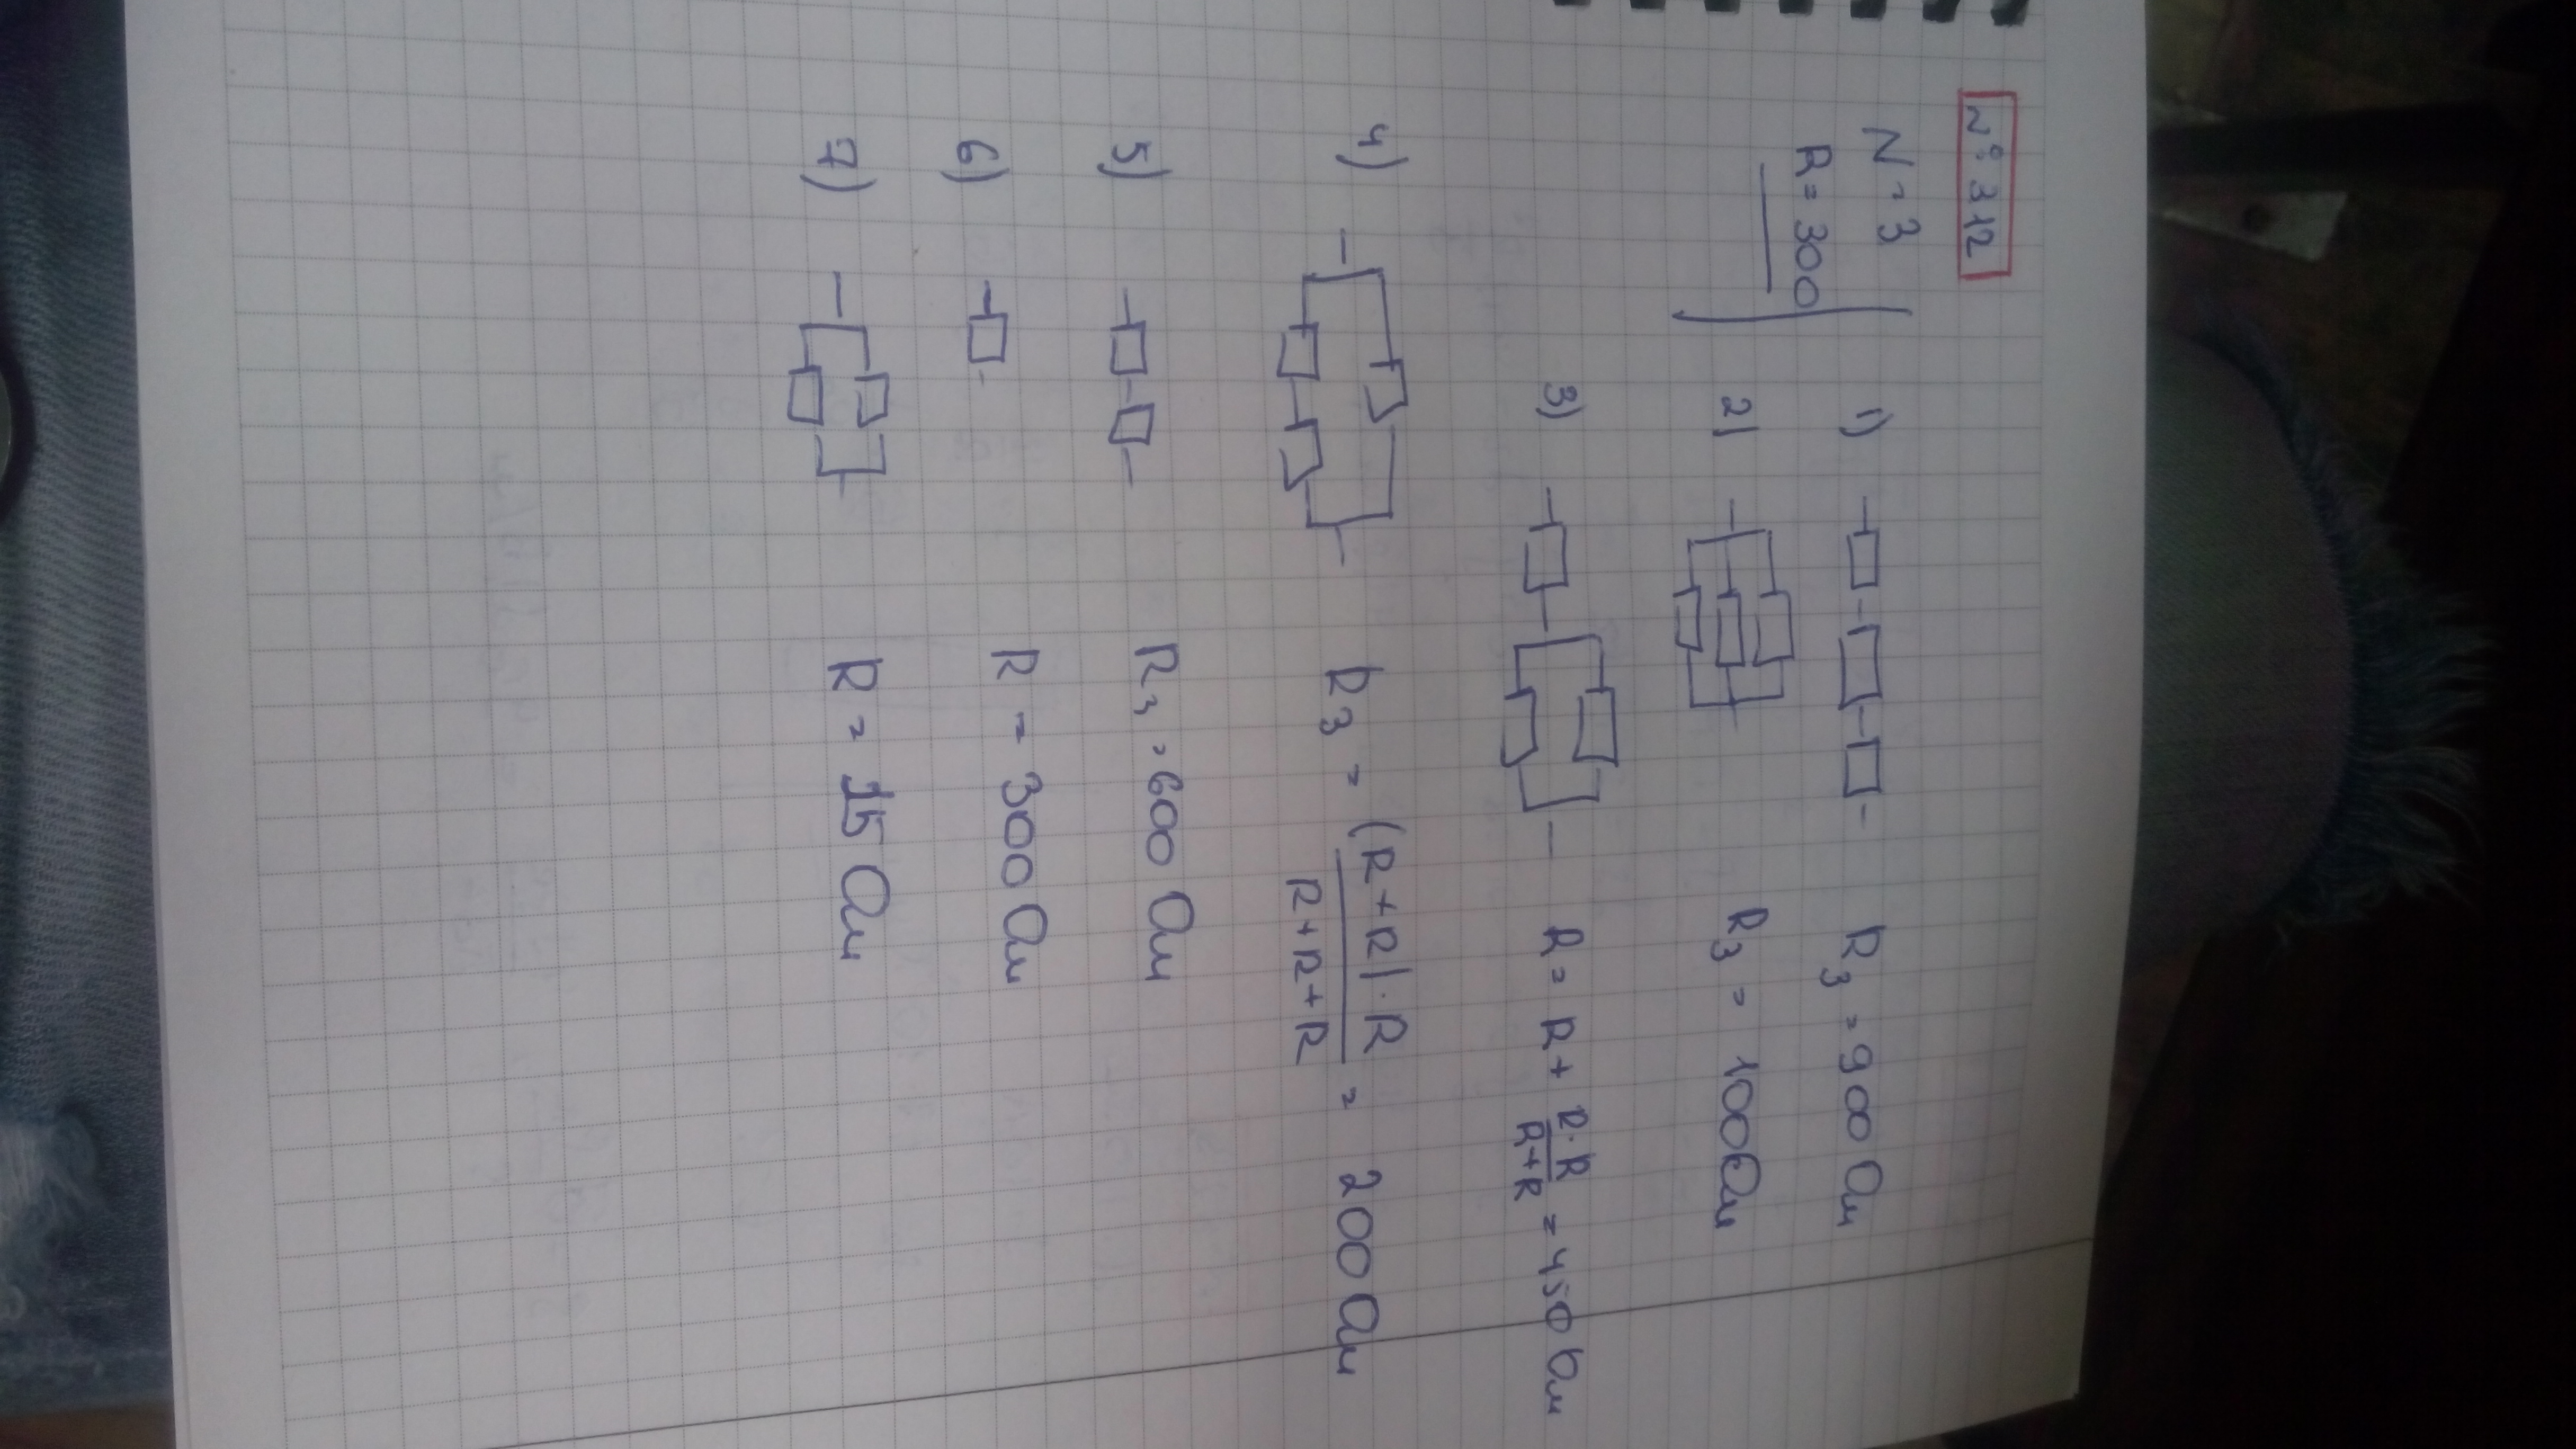 N° 312
N = 3
R = 300
1) R₃ = 900 Ом
2) R₃ = 100 Ом
3) R = R + R·R / R+R = 450 Ом
4) R₃ = (R+R)·R / R+R+R = 200 Ом
5) R₃ = 600 Ом
6) R = 300 Ом
7) R = 15 Ом